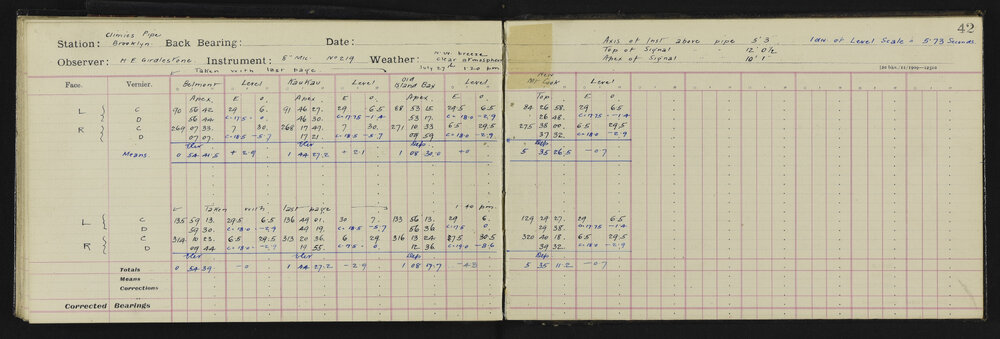 42
Climies Pipe
Station: Brooklyn Back Bearing: Date:
Axis of Inst above pipe 5' 3" 1 div of Level Scale = 5.73 Seconds
Top of Signal " 12' 0½
Apex of Signal " 10' 1"
Observer: H E Girdlestone. Instrument: 5" Mic No 219 Weather: N.W. breeze clear atmosphere
July 27th 1.20 pm
Taken with last page
Face. Vernier. Belmont Level Kaukau Level Old Island Bay Level New Mt Cook Level
Apex. E O. Apex. E O. Apex. E O. Top. E O.
L C 90 56 42 29 6. 91 46 27. 29 6.5 88 53 15 29.5 6.5 84 26 58. 29 6.5
D 56 44 C=17.5 0. 46 30. C=17.75 -1.4 53 17. C=18.0 -2.9 26 48. C=17.75 -1.4
R C 269 07 33. 7 30. 268 17 49. 7 30. 271 10 33 6.5 29.5 275 35 00. 6.5 29.5
D 07 07. C=18.5 -5.7 17 21. C=18.5 -5.7 09 59 C=18.0 -2.9 37 32. C=18.0 -2.9
Elev Elev Dep. Dep
Means. 0 54 41.5 + 2.9 1 44 27.2 + 2.1 1 08 30.0 +0 5 35 26.5 -0.7
Taken with last page 1 40 pm.
L C 135 59 13. 29.5 6.5 136 49 01. 30 7. 133 56 13. 29 6. 129 29 27. 29 6.5
D 59 30. C=18.0 -2.9 49 19. C=18.5 -5.7 56 36 C=17.5 0. 29 38. C=17.75 -1.4
R C 314 10 23. 6.5 29.5 313 20 36. 6 29 316 13 24. 30.5 320 40 18. 6.5 29.5
D 09 44 C=18.0 -2.9 19 55. C=17.5 0. 12 36 C=19.0 -8.6 39 32. C=18.0 -2.9
Elev Elev Dep Dep
Totals 0 54 39. -0 1 44 27.2 -2.9 1 08 19.7 -4.3 5 35 11.2 -0.7
Means
Corrections
Corrected Bearings